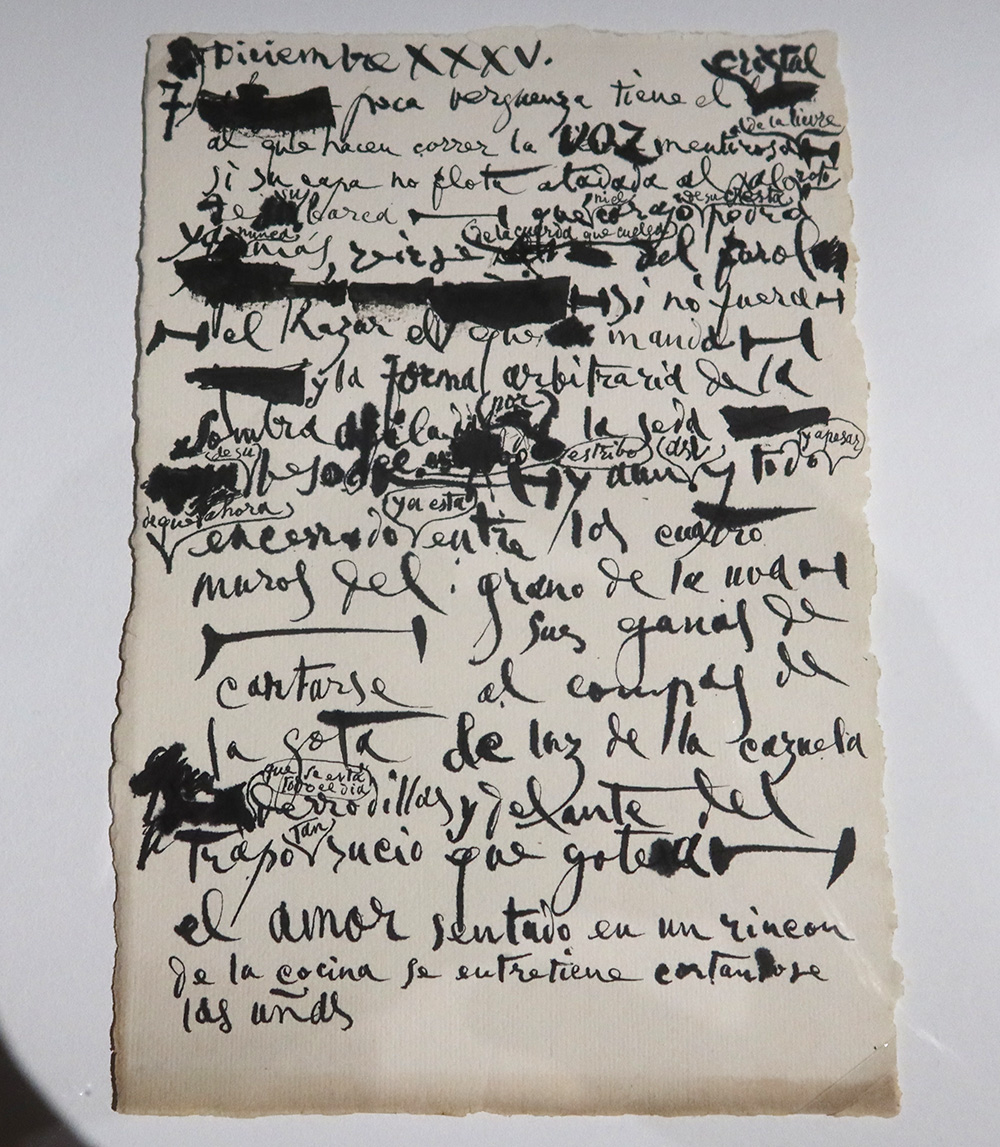 Diciembre XXXV.
7 poca verguenza tiene el cristal
al que hacen correr la voz mentirosa de la liebre
si su capa no flota atadada al
de su barca que ni el carajo de su cresta podra
ya nunca más, reirse de la cuerda que cuelga del farol
si no fuera
el hazar el que manda
y la forma arbitraria de la
sombra afilada por la seda
de su beso del estribo y asi dan y todo y apesar
de que ahora encerrado ya esta entre los cuatro
muros del grano de la uva
sus ganas de
cantarse al compas de
la gota de luz de la cazuela
que se está todo el dia de rrodillas y delante del
trapo tan sucio que gotea
el amor sentado en un rincon
de la cocina se entretiene cortandose
las uñas